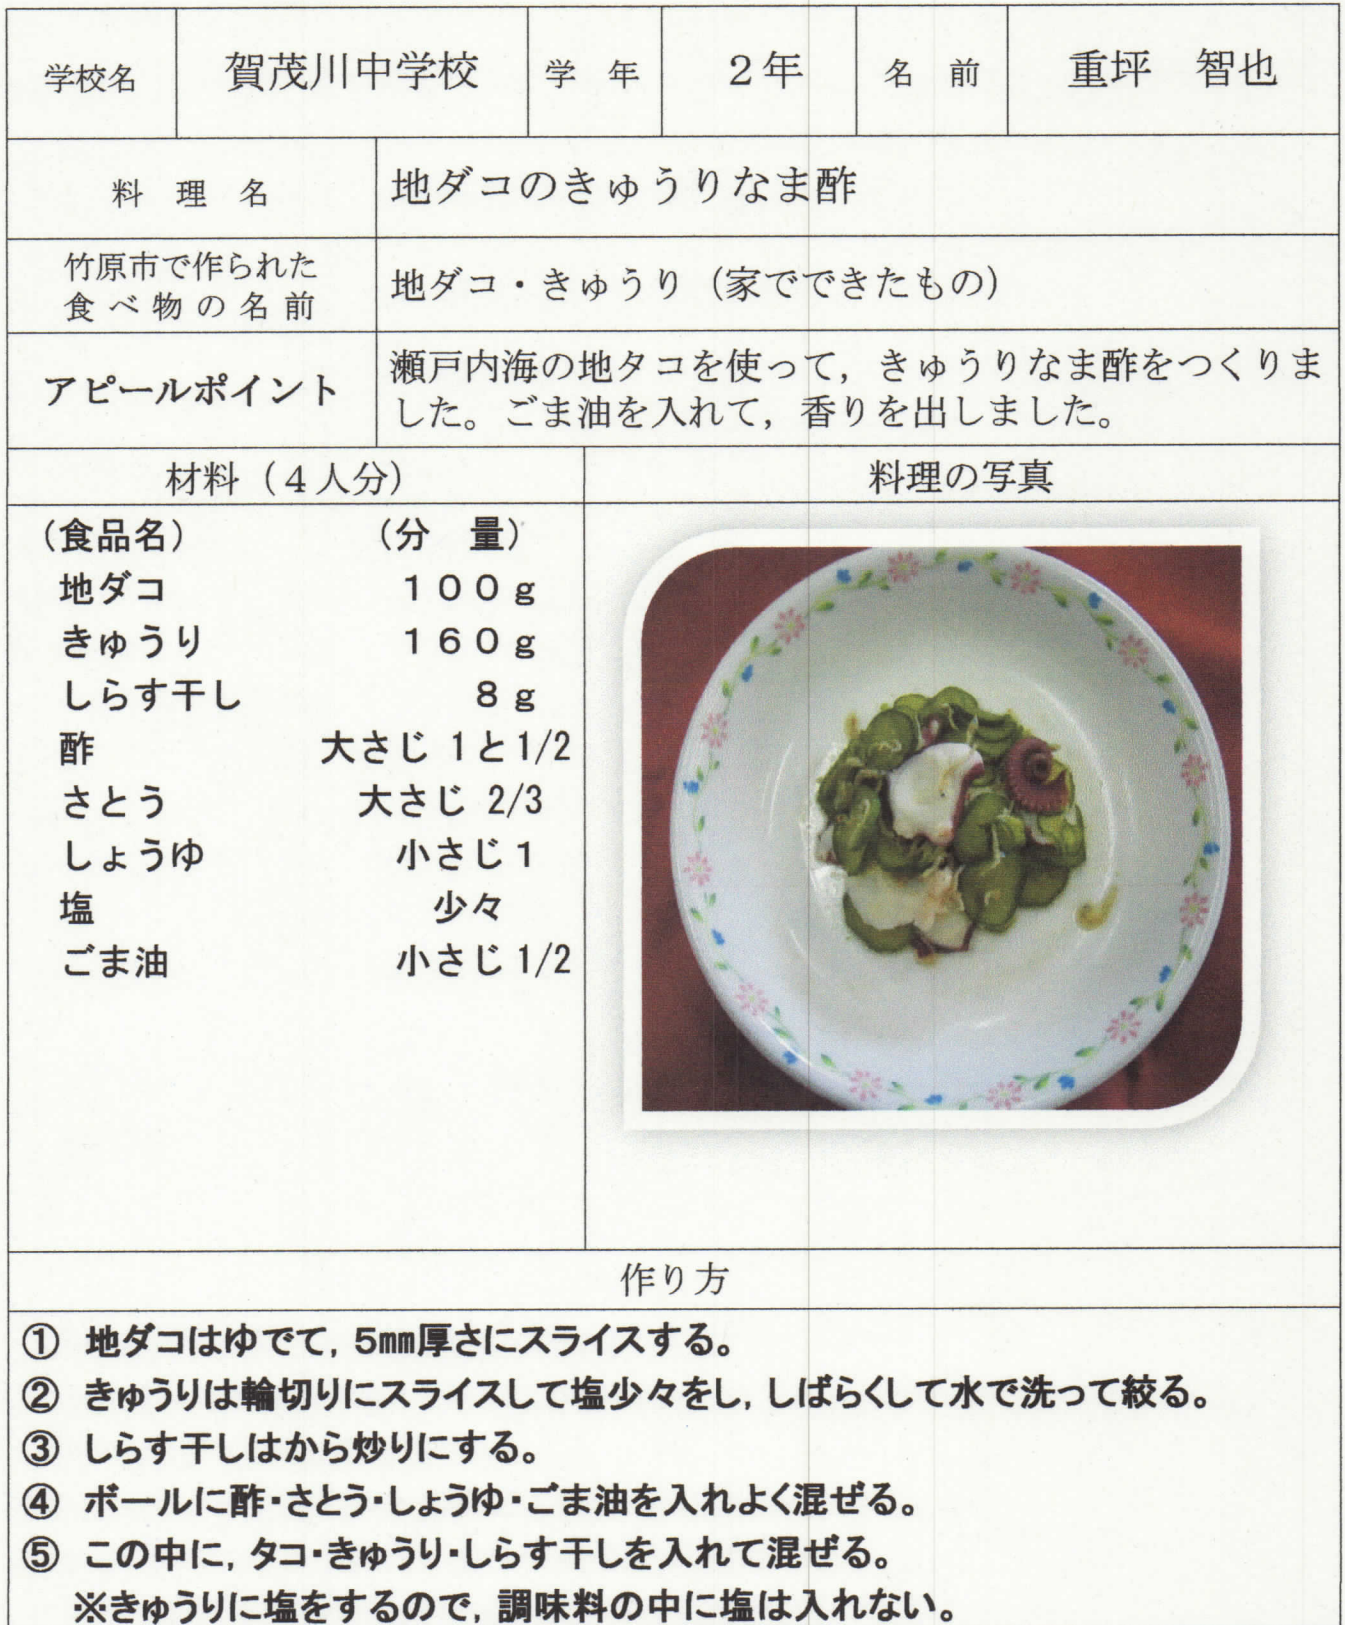 学校名 賀茂川中学校 学年 2年 名前 重坪 智也
料理名 地ダコのきゅうりなま酢
竹原市で作られた
食べ物の名前
地ダコ・きゅうり（家でできたもの）
アピールポイント
瀬戸内海の地タコを使って，きゅうりなま酢をつくりま
した。ごま油を入れて，香りを出しました。
材料（４人分）
（食品名） （分 量）
地ダコ １００ｇ
きゅうり １６０ｇ
しらす干し ８ｇ
酢 大さじ 1と1/2
さとう 大さじ 2/3
しょうゆ 小さじ1
塩 少々
ごま油 小さじ1/2
料理の写真
作り方
① 地ダコはゆでて，5㎜厚さにスライスする。
② きゅうりは輪切りにスライスして塩少々をし，しばらくして水で洗って絞る。
③ しらす干しはから炒りにする。
④ ボールに酢・さとう・しょうゆ・ごま油を入れよく混ぜる。
⑤ この中に，タコ・きゅうり・しらす干しを入れて混ぜる。
※きゅうりに塩をするので，調味料の中に塩は入れない。